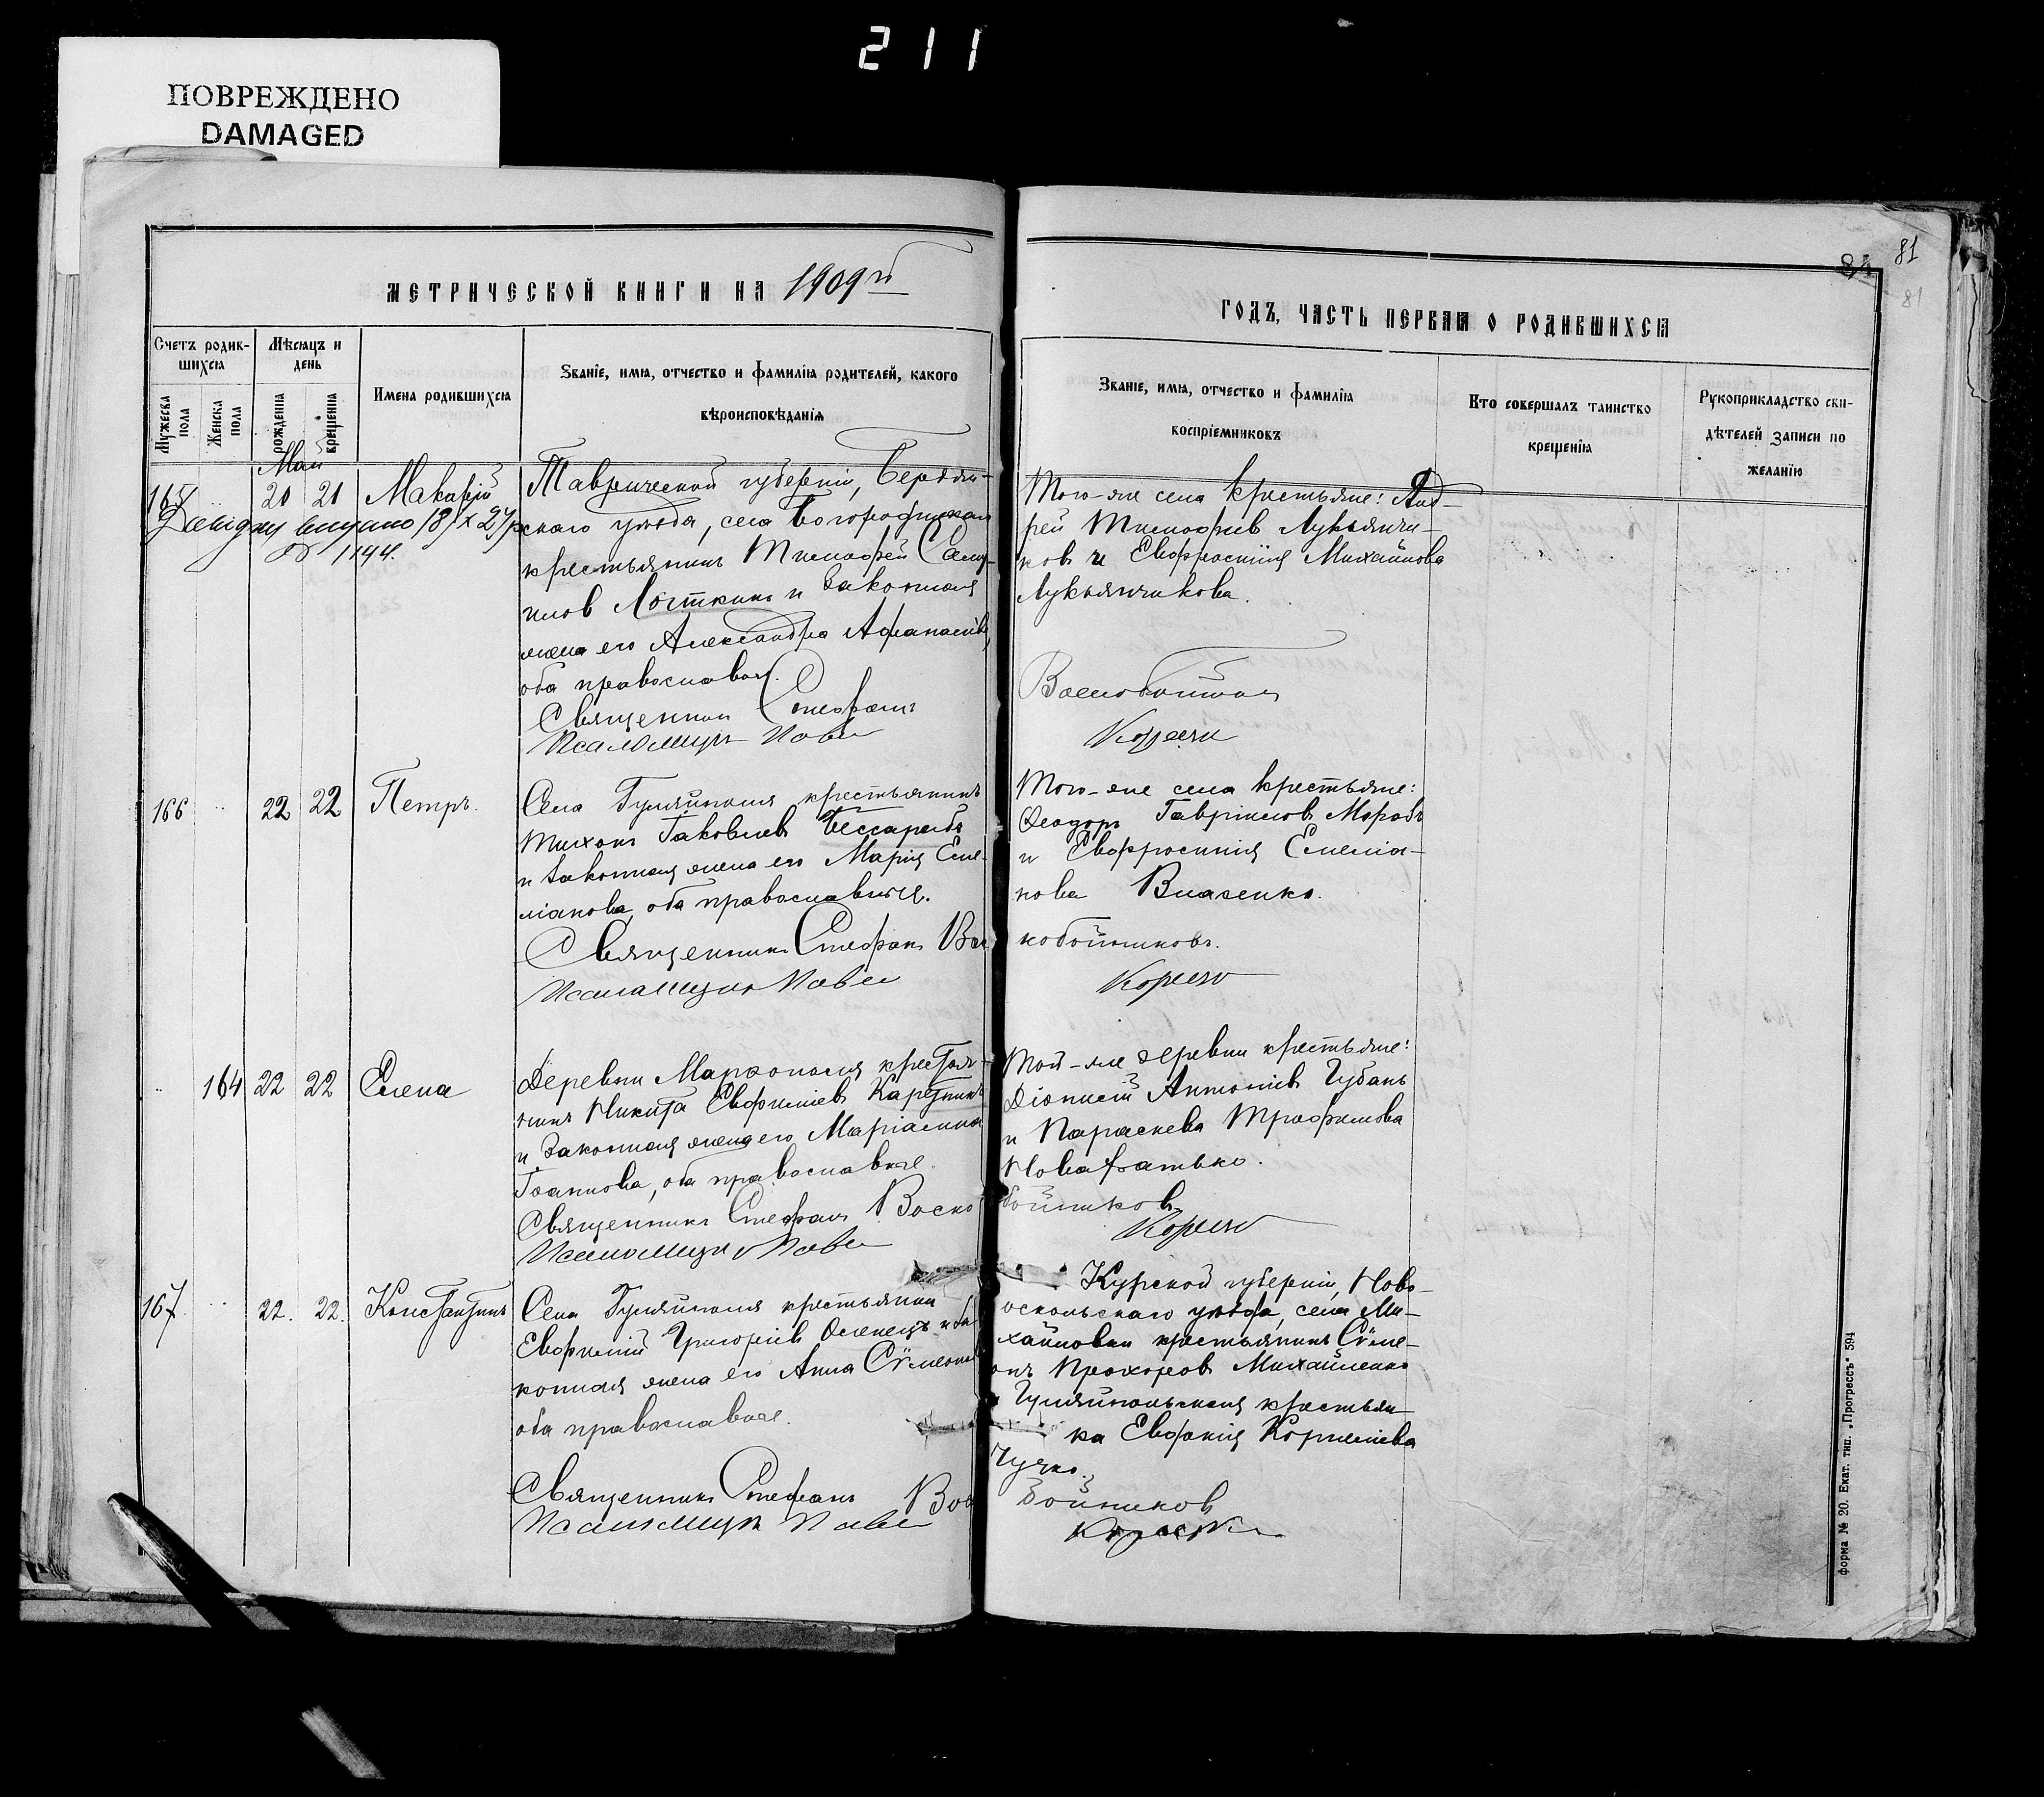 211
ПОВРЕЖДЕНО
DAMAGED
81
81
МЕТРИЧЕСКОЙ КНИГИ НА 1909й
ГОДЪ, ЧАСТЬ ПЕРВАЯ О РОДИВШИХСЯ
Счетъ родив-
шихся
Мужеска пола
Женска пола
Мѣсяцъ и
день
рожденія
крещенія
Имена родившихся
Званіе, имя, отчество и фамилія родителей, какого
вѣроисповѣданія
Званіе, имя, отчество и фамилія
воспріемниковъ
Кто совершалъ таинство
крещенія
Рукоприкладство сви-
дѣтелей записи по
желанію
Май
165 20 21 Макарій
1144.
Таврической губерніи, Бердян-
скаго уѣзда, села Богородицкаго
крестьянинъ Тимофей Самуи-
лов и законная
жена его Александра Афанасіева,
оба православн.
Священник Стефанъ
Псаломщикъ Павел
Того-же села крестьяне: Анд-
рей Тимофеев Лукьянчи-
ков и Евфросинія Михайлова
Лукьянчикова.
Воскобойников
166 22 22 Петръ.
Села Гуляйполя крестьянинъ
Тихонъ Іаковлев Бессарабъ
и законная жена его Марія Еме-
ліанова, оба православные.
Священникъ Стефанъ Вос
Псаломщикъ Павел
Того-же села крестьяне:
Ѳеодоръ Гавріилов Морозъ
и Евфросинія Емеліа-
нова Власенко.
кобойниковъ.
164 22 22 Елена
Деревни Марфополя крестья-
нинъ Никита Евфиміев
и законная жена его Маріамна
Іоаннова, оба православные.
Священникъ Стефанъ Воско
Псаломщикъ Павел
Той-же деревни крестьяне:
Діонисій Антоніев Губань
и Параскева Трофимова
бойников
167 22. 22. Константинъ
Села Гуляйполя крестьянин
Евфимій Григоріев Оленецъ и за
конная жена его Анна Сѵмеонов
оба православные.
Священникъ Стефанъ Вос
Псаломщикъ Павел
Курской губерніи, Ново-
оскольскаго уѣзда, села Ми-
хайловки крестьянинъ Сѵме-
онъ Прохоров Михайленко
Гуляйпольская крестьян
ка Евфимія Корниліева
бойников
форма № 20. Екат. тип. „Прогрессъ" 594